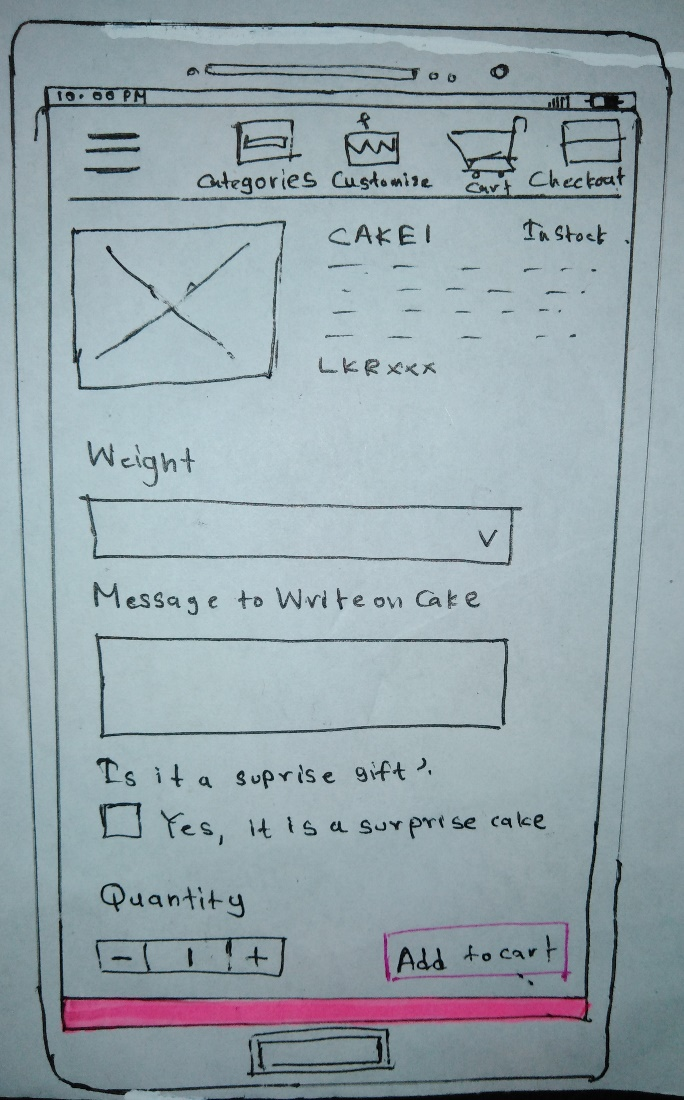 10.00 PM
Categories Customise Cart Checkout
CAKE 1 In Stock
LKR xxx
Weight
V
Message to Write on Cake
Is it a suprise gift?
Yes, it is a surprise cake
Quantity
- 1 +
Add to cart